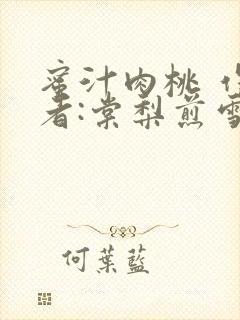 蜜汁肉桃 作
者:棠梨煎雪
何葉藍